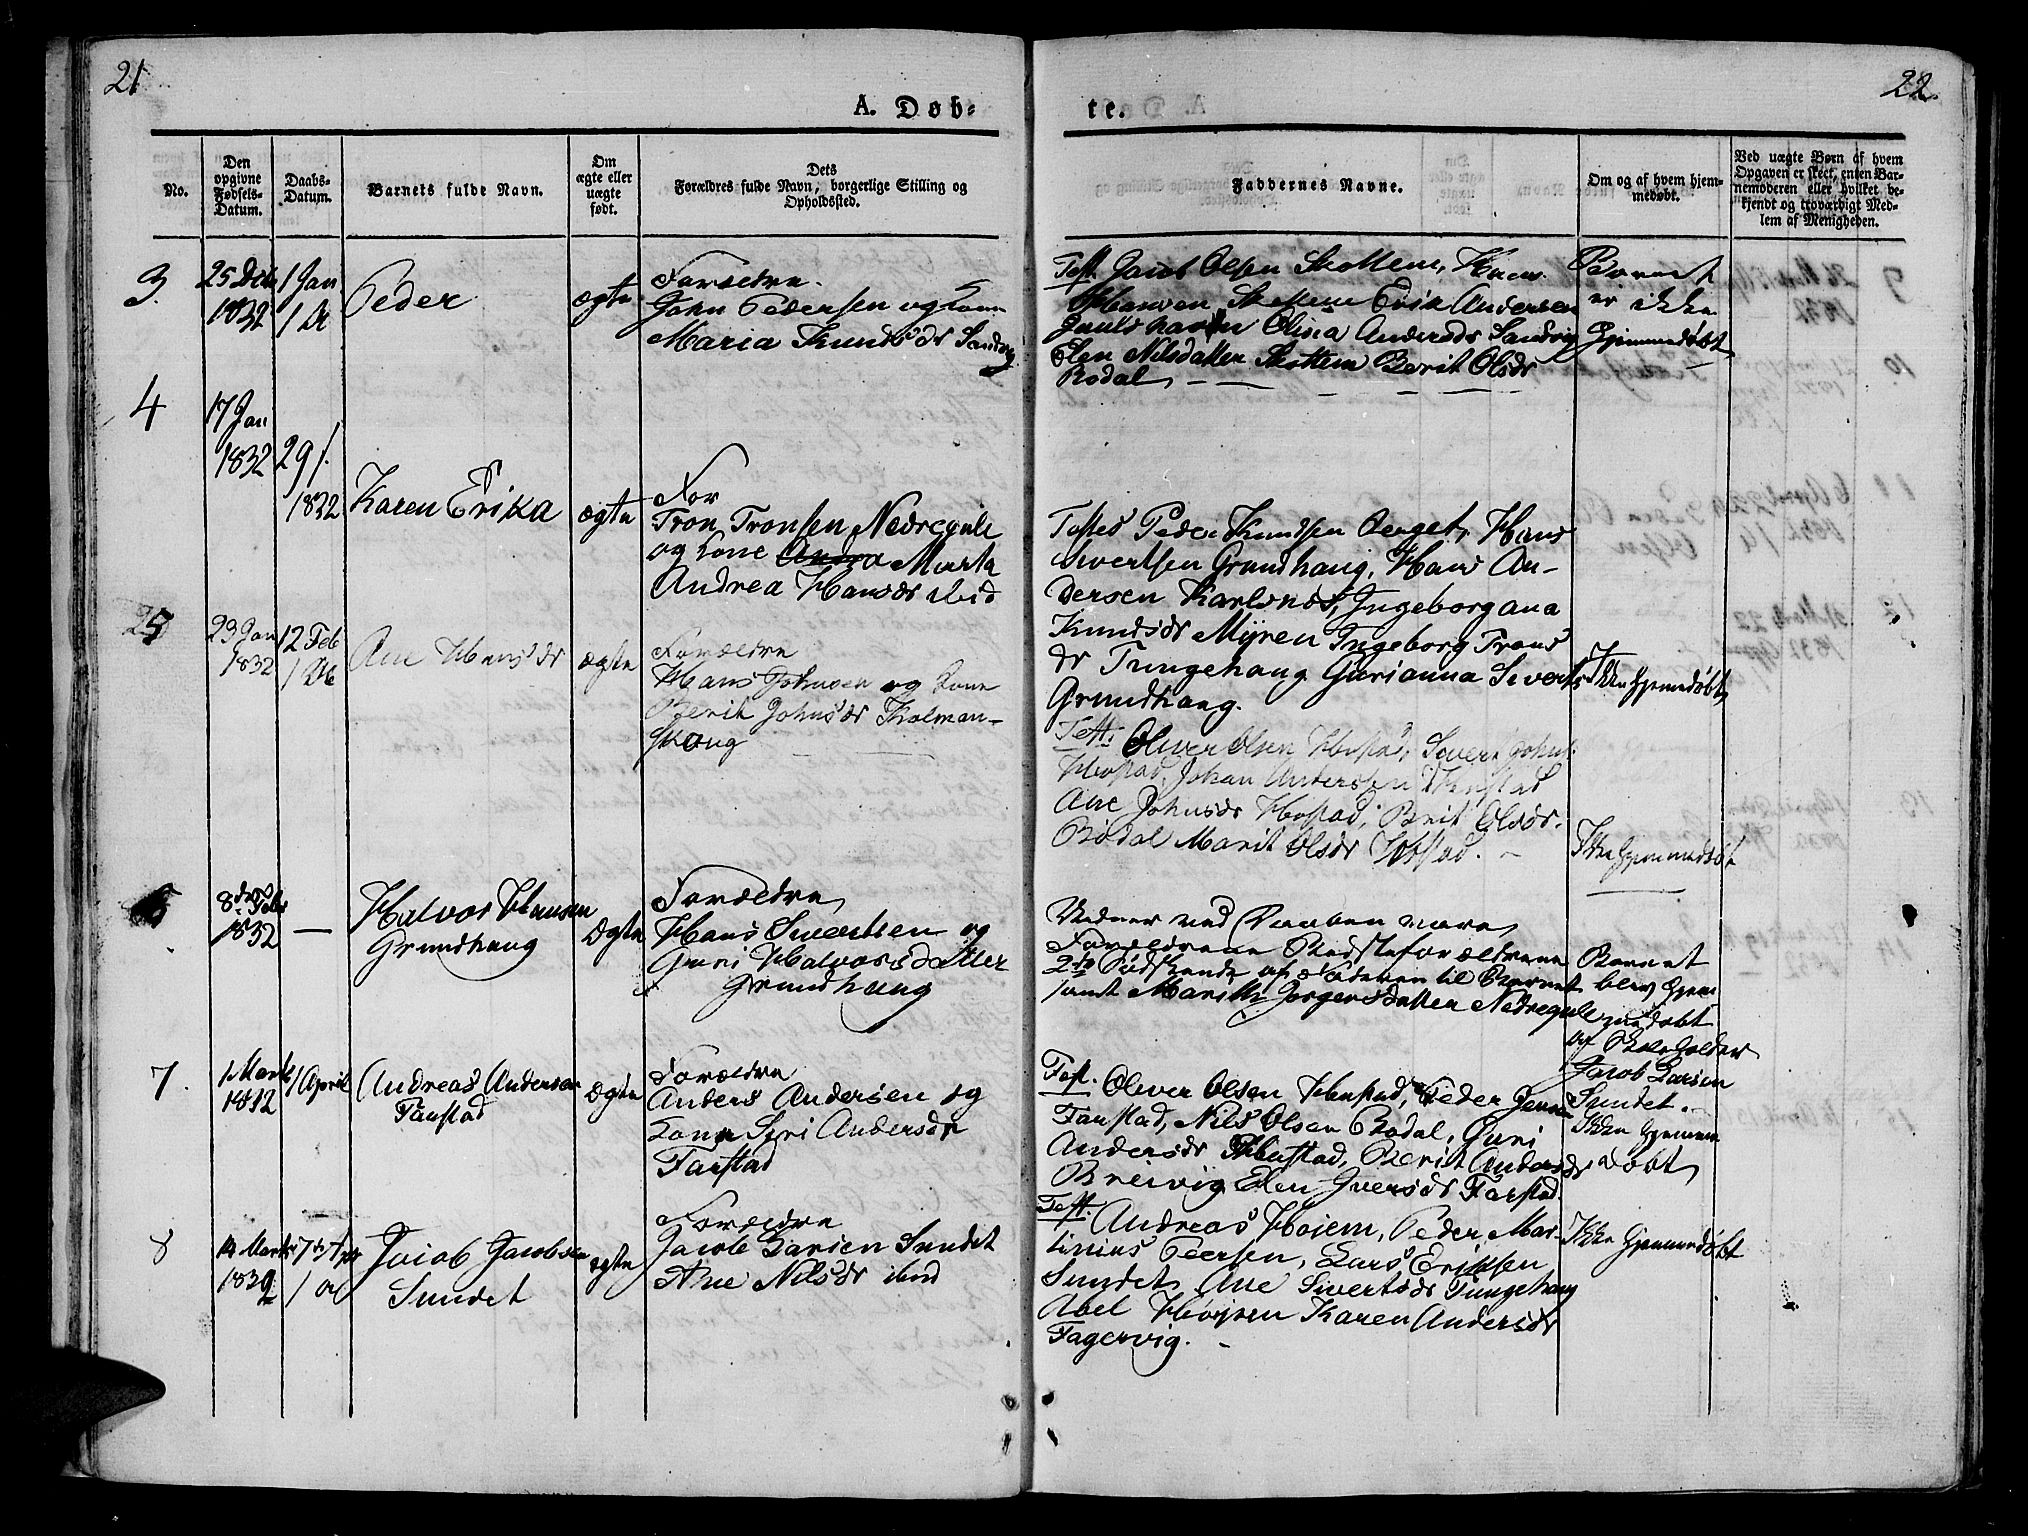 21
22
A. Døb-
te.
No.
Den opgivne Fødsels-Datum.
Daabs-Datum.
Barnets fulde Navn.
Om ægte eller uægte født.
Dets
Forældres fulde Navn, borgerlige Stilling og
Opholdssted.
Faddernes Navne.
Om og af hvem hjem-
medøbt.
Ved uægte Børn af hvem
Opgaven er skeet, enten Bar-
nemoderen eller hvilket be-
kjendt og troværdigt Med-
lem af Menigheden.
3.
1 Jan
1832
Peder
ægte
Forældre
John Pedersen og Kone
Maria Knudsdr Sandvig
Test. Jacob Olsen Skottem, Hans
Hansen Erik Andersen
Olina Andersdr Sandvig
Elen Nilsdatter Skottem Berit Olsdr
Rodal
Barnet
er ikke
Hjemmedøbt
4
17 Jan
1832
29/1
1832
Karen Erika
ægte
For
Tron Tronsen Nedregule
og Kone Marta
Andrea Hansdr ibid
Testes Peder Knudsen Berget, Hans
Sivertsen Grundhaug, Hans An-
dersen Karlsnes, Ingeborgana
Knudsdr Myren Ingeborg Trons
dr Tungehaug Gurianna Siverts
Grundhaug.
Ikke Hjemmedøbt
5
23 Jan
1832
12 Feb
Ane Hansdr
ægte
Forældre
Hans Johnsen og Kone
Berit Johnsdr Kolman-
skoug
Test. Oliver Olsen Hustad, Siver Johns.
Hustad, Johan Anderssen Hustad
Ane Johnsdr Hustad, Brit Olsdr.
Rødal Marit Olsdr Hustad.
Ikke Hjemmedøbt
6
8de Febr
1832
—
Halvor Hansen
Grundhaug
Ægte
Forældre
Hans Sivertsen og
Guri Halvorsdatter
Grundhaug
Vidner ved Daaben vare
Forældrene Bedsteforældrene
2de Sødskende af Faderen til Barnet
samt Marith Jørgensdatter Nedregule
Barnet
blev hjem
medøbt
af Skoleholder
Jacob Larsen
Sundet.
7.
1 Marts
1832
1 April
Andreas Andersen
Farstad
Ægte
Forældre
Anders Andersen og
Kone Siri Andersdr
Farstad
Test. Oliver Olsen Hustad, Peder Jensen
Farstad, Nils Olsen Rodal, Guri
Andersdr Hustad, Berit Andersdr
Breivig Elen Iversdr Farstad.
Ikke Hjemme
døbt
8
14 Marts
1832
Jacob Jacobsen
Sundet
ægte
Forældre
Jacob Larsen Sundet
Ane Nilsdr ibid
Test. Andreas Højem, Peder Mar-
tinius Peersen, Lars Eriksen
Sundet, Ane Sivertsdr Tungehaug
Abel Højem Karen Andersdr
Fagervig.
Ikke Hjemmedøbt